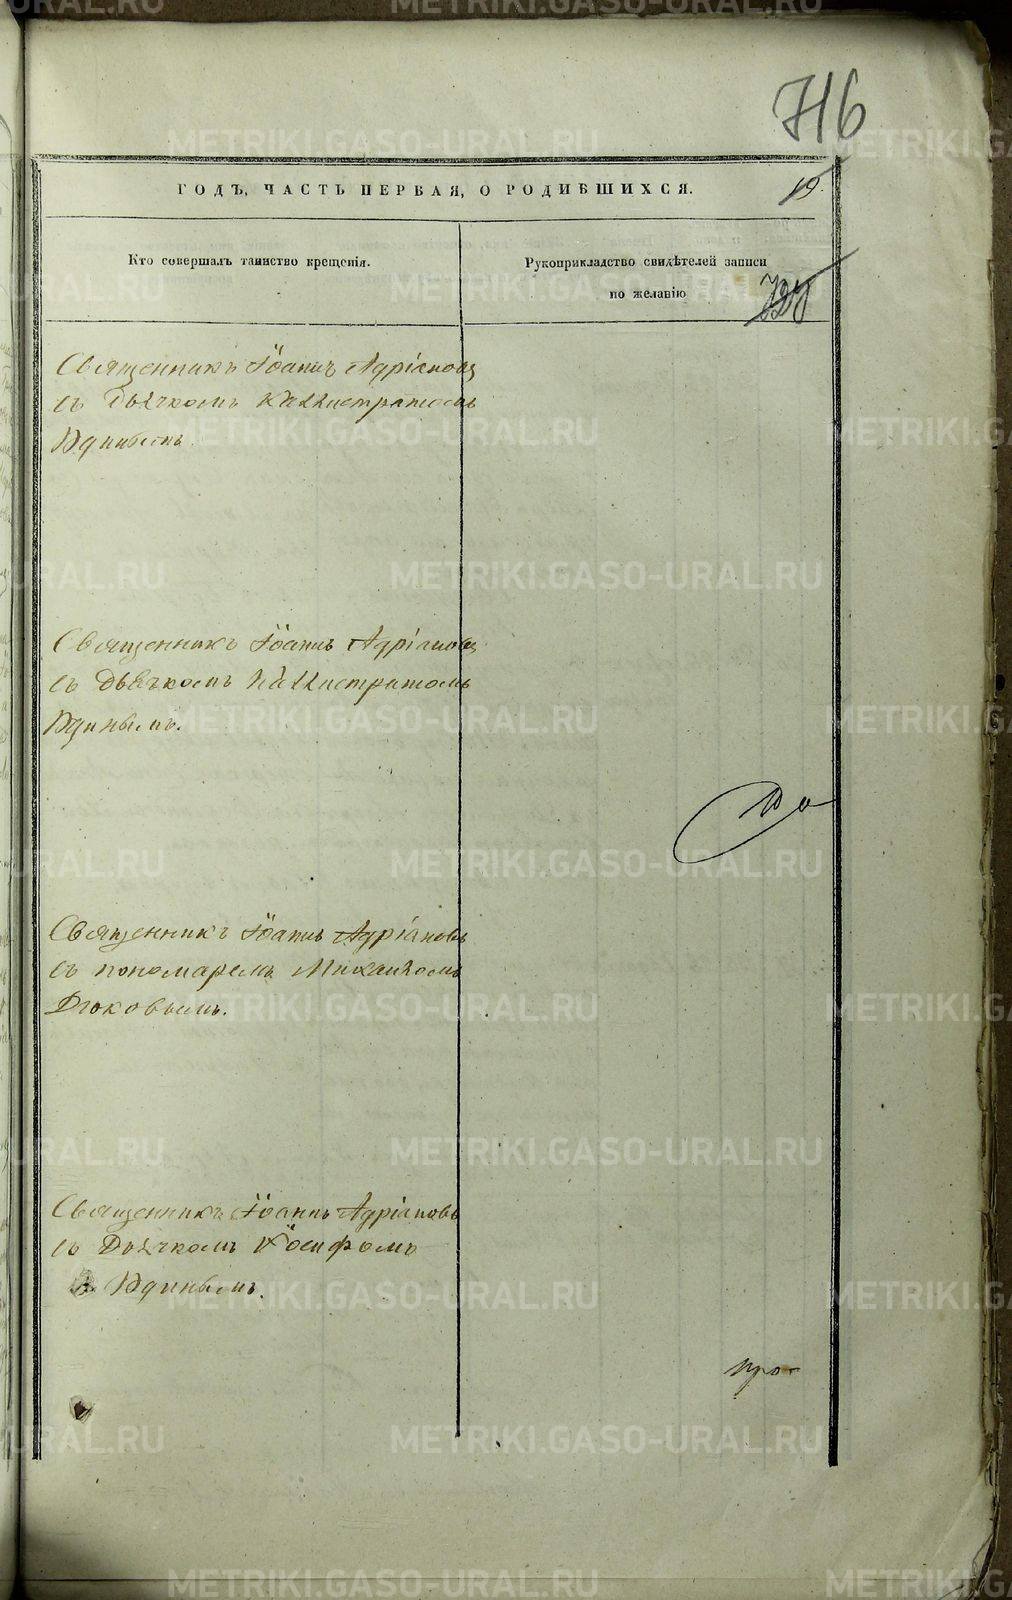 716
ГОДЪ, ЧАСТЬ ПЕРВАЯ, О РОДИВШИХСЯ.
19.
Кто совершалъ таинство крещенія.
Рукоприкладство свидѣтелей записи
по желанію
Священникъ Іоаннъ Адріановъ
съ Дьячкомъ Каллистратомъ
Удинымъ.
Священникъ Іоаннъ Адріановъ
съ Дьячкомъ Каллистратомъ
Удинымъ.
Священникъ Іоаннъ Адріановъ
съ пономаремъ Михаиломъ
Дюковымъ.
Священникъ Іоаннъ Адріановъ
съ Дьячкомъ Іосифомъ
Удинымъ.
про-
METRIKI.GASO-URAL.RU